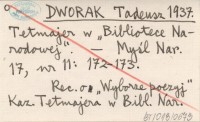 DWORAK Tadeusz 1937.
Tetmajer w „Bibliotece Na-
rodowej". — Myśl Nar.
17, nr 11: 172-173.
Rec. o „Wyborze poezyj"
Kaz. Tetmajera w Bibl. Nar.